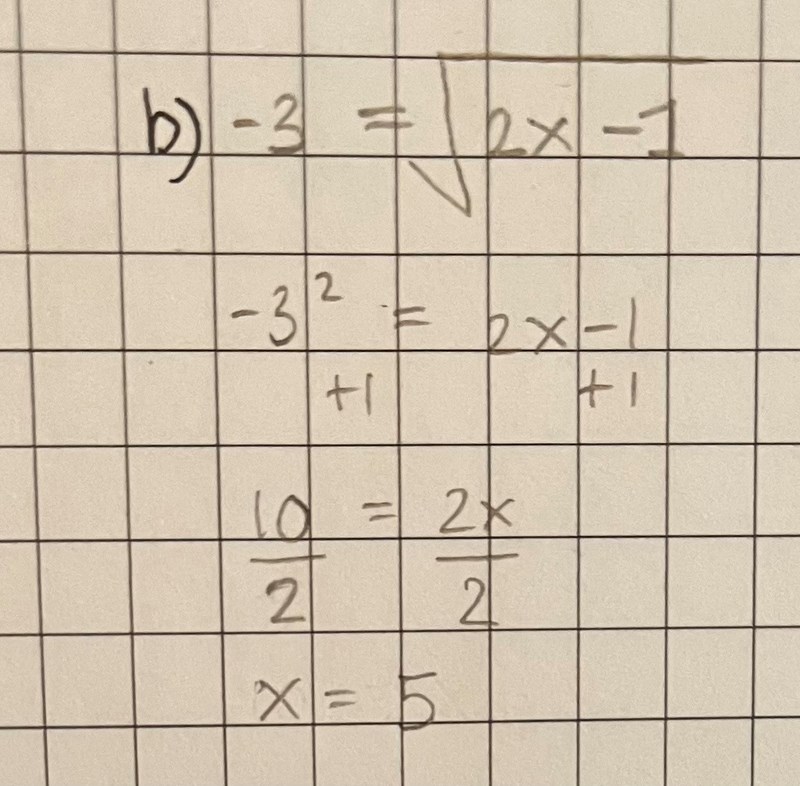 b) -3 = √(2x - 1)
-3² = 2x - 1
+1 +1
10/2 = 2x/2
x = 5